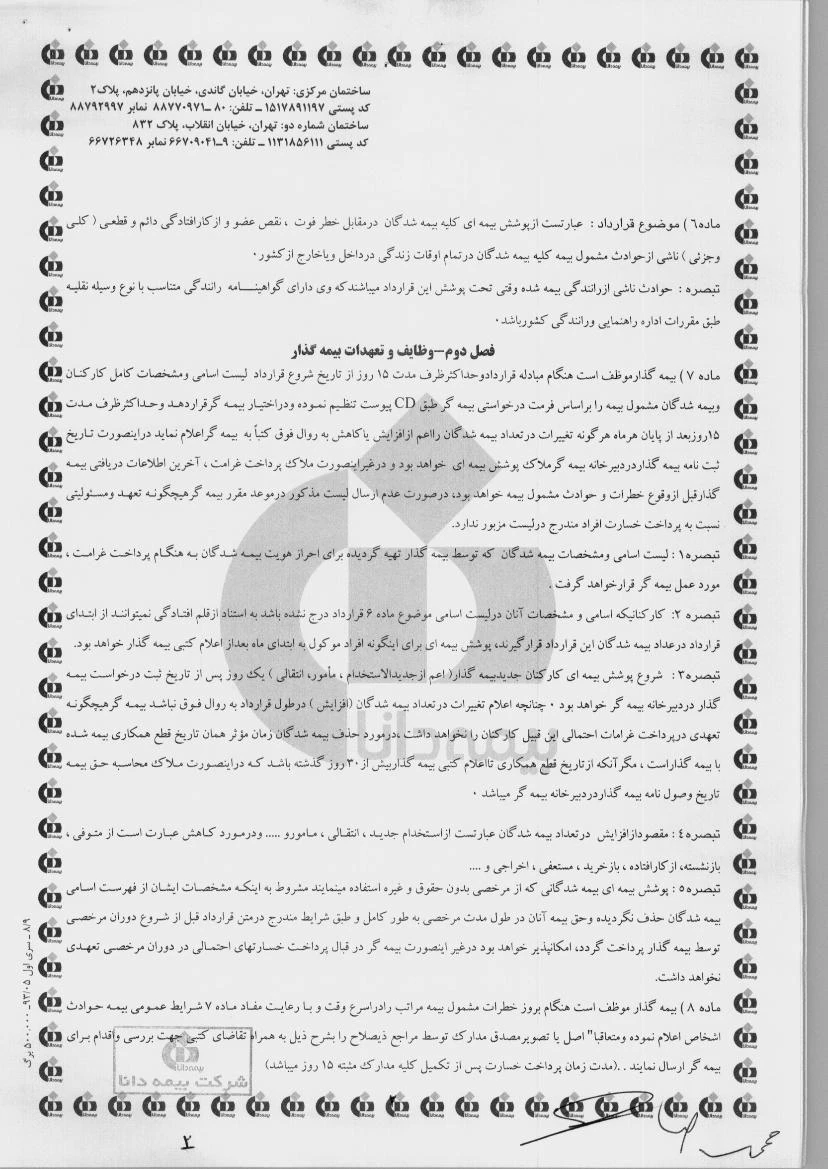 ساختمان مرکزی: تهران، خیابان گاندی، خیابان پانزدهم، پلاک۲
کد پستی ۱۵۱۷۸۹۱۱۹۷ ــ تلفن: ۸۰ ــ۸۸۷۷۰۹۷۱ نمابر ۸۸۷۹۲۹۹۷
ساختمان شماره دو: تهران، خیابان انقلاب، پلاک ۸۳۲
کد پستی ۱۱۳۱۸۵۶۱۱۱ ــ تلفن: ۹ــ۶۶۷۰۹۰۴۱ نمابر ۶۶۷۲۶۳۴۸
ماده۶ ) موضوع قرارداد : عبارتست ازپوشش بیمه ای کلیه بیمه شدگان درمقابل خطر فوت ، نقص عضو و ازکارافتادگی دائم و قطعی ( کلی
وجزئی ) ناشی ازحوادث مشمول بیمه کلیه بیمه شدگان درتمام اوقات زندگی درداخل ویاخارج ازکشور۰
تبصره : حوادث ناشی ازرانندگی بیمه شده وقتی تحت پوشش این قرارداد میباشندکه وی دارای گواهینـــامه رانندگی متناسب با نوع وسیله نقلیه
طبق مقررات اداره راهنمایی ورانندگی کشورباشد۰
فصل دوم–وظایف و تعهدات بیمه گذار
ماده ۷ ) بیمه گذارموظف است هنگام مبادله قراردادوحداکثرظرف مدت ۱۵ روز از تاریخ شروع قرارداد لیست اسامی ومشخصات کامل کارکنان
وبیمه شدگان مشمول بیمه را براساس فرمت درخواستی بیمه گر طبق CD پیوست تنظیم نموده ودراختیار بیمه گرقراردهد وحداکثرظرف مدت
۱۵روزبعد از پایان هرماه هرگونه تغییرات درتعداد بیمه شدگان رااعم ازافزایش یاکاهش به روال فوق کتباً به بیمه گراعلام نماید دراینصورت تاریخ
ثبت نامه بیمه گذاردردبیرخانه بیمه گرملاک پوشش بیمه ای خواهد بود و درغیراینصورت ملاک پرداخت غرامت ، آخرین اطلاعات دریافتی بیمه
گذارقبل ازوقوع خطرات و حوادث مشمول بیمه خواهد بود، درصورت عدم ارسال لیست مذکور درموعد مقرر بیمه گرهیچگونه تعهد ومسئولیتی
نسبت به پرداخت خسارت افراد مندرج درلیست مزبور ندارد.
تبصره۱: لیست اسامی ومشخصات بیمه شدگان که توسط بیمه گذار تهیه گردیده برای احراز هویت بیمه شدگان به هنگام پرداخت غرامت ،
مورد عمل بیمه گر قرارخواهد گرفت .
تبصره ۲: کارکنانیکه اسامی و مشخصات آنان درلیست اسامی موضوع ماده ۶ قرارداد درج نشده باشد به استناد ازقلم افتادگی نمیتوانند از ابتدای
قرارداد درعداد بیمه شدگان این قرارداد قرارگیرند، پوشش بیمه ای برای اینگونه افراد موکول به ابتدای ماه بعداز اعلام کتبی بیمه گذار خواهد بود.
تبصره۳: شروع پوشش بیمه ای کارکنان جدیدبیمه گذار( اعم ازجدیدالاستخدام ، مأمور، انتقالی ) یک روز پس از تاریخ ثبت درخواست بیمه
گذار دردبیرخانه بیمه گر خواهد بود ۰ چنانچه اعلام تغییرات درتعداد بیمه شدگان (افزایش ) درطول قرارداد به روال فوق نباشد بیمه گرهیچگونه
تعهدی درپرداخت غرامات احتمالی این قبیل کارکنان را نخواهد داشت ،درمورد حذف بیمه شدگان زمان مؤثر همان تاریخ قطع همکاری بیمه شده
با بیمه گذاراست ، مگرآنکه ازتاریخ قطع همکاری تااعلام کتبی بیمه گذاربیش از۳۰ روز گذشته باشد که دراینصورت ملاک محاسبه حق بیمه
تاریخ وصول نامه بیمه گذاردردبیرخانه بیمه گر میباشد ۰
تبصره۴: مقصودازافزایش درتعداد بیمه شدگان عبارتست ازاستخدام جدید ، انتقالی ، مامورو ..... ودرمورد کاهش عبارت است از متوفی ،
بازنشسته، ازکارافتاده ، بازخرید ، مستعفی ، اخراجی و ....
تبصره۵: پوشش بیمه ای بیمه شدگانی که از مرخصی بدون حقوق و غیره استفاده مینمایند مشروط به اینکه مشخصات ایشان از فهرست اسامی
بیمه شدگان حذف نگردیده وحق بیمه آنان در طول مدت مرخصی به طور کامل و طبق شرایط مندرج درمتن قرارداد قبل از شروع دوران مرخصی
توسط بیمه گذار پرداخت گردد، امکانپذیر خواهد بود درغیر اینصورت بیمه گر در قبال پرداخت خسارتهای احتمالی در دوران مرخصی تعهدی
نخواهد داشت.
ماده ۸ ) بیمه گذار موظف است هنگام بروز خطرات مشمول بیمه مراتب رادراسرع وقت و با رعایت مفاد ماده ۷ شرایط عمومی بیمه حوادث
اشخاص اعلام نموده ومتعاقبا" اصل یا تصویرمصدق مدارک توسط مراجع ذیصلاح را بشرح ذیل به همراه تقاضای کتبی جهت بررسی واقدام برای
بیمه گر ارسال نمایند . .(مدت زمان پرداخت خسارت پس از تکمیل کلیه مدارک مثبته ۱۵ روز میباشد)
بیمه دانا
شرکت بیمه دانا
۸/۹ ــ سری اول ۹۳/۰۵ ــ ۵۰۰.۰۰۰ برگ
۲
۲